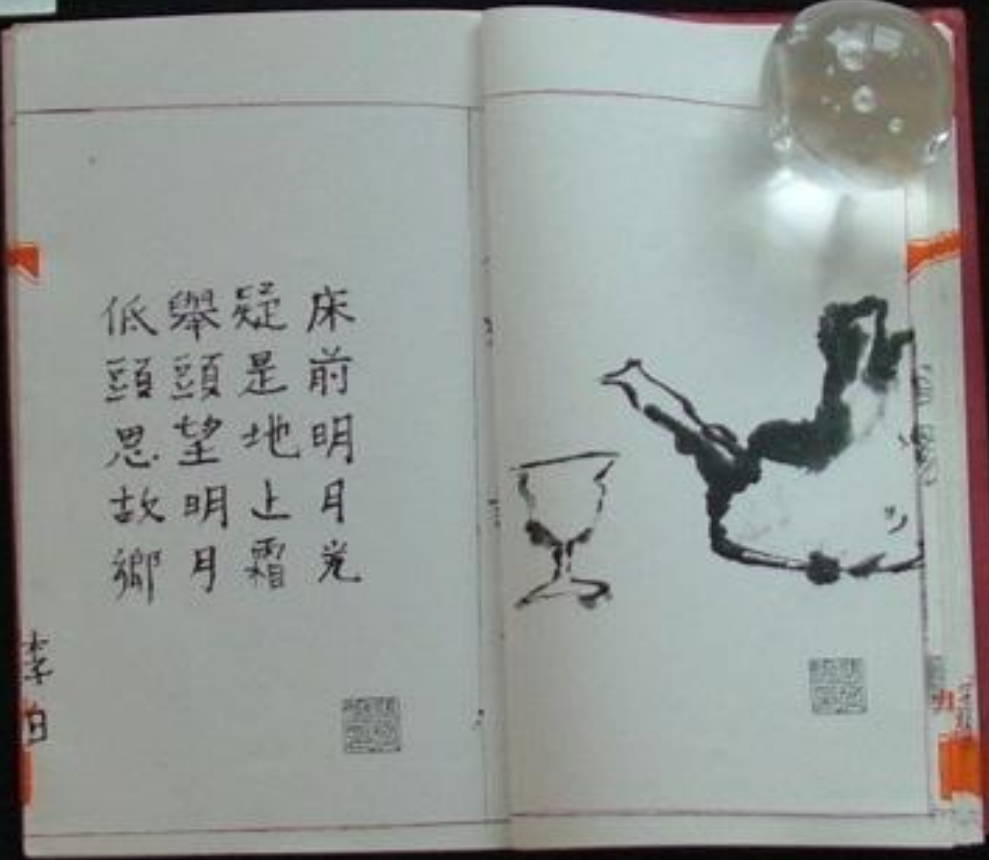 床前明月光
疑是地上霜
舉頭望明月
低頭思故鄉
李白